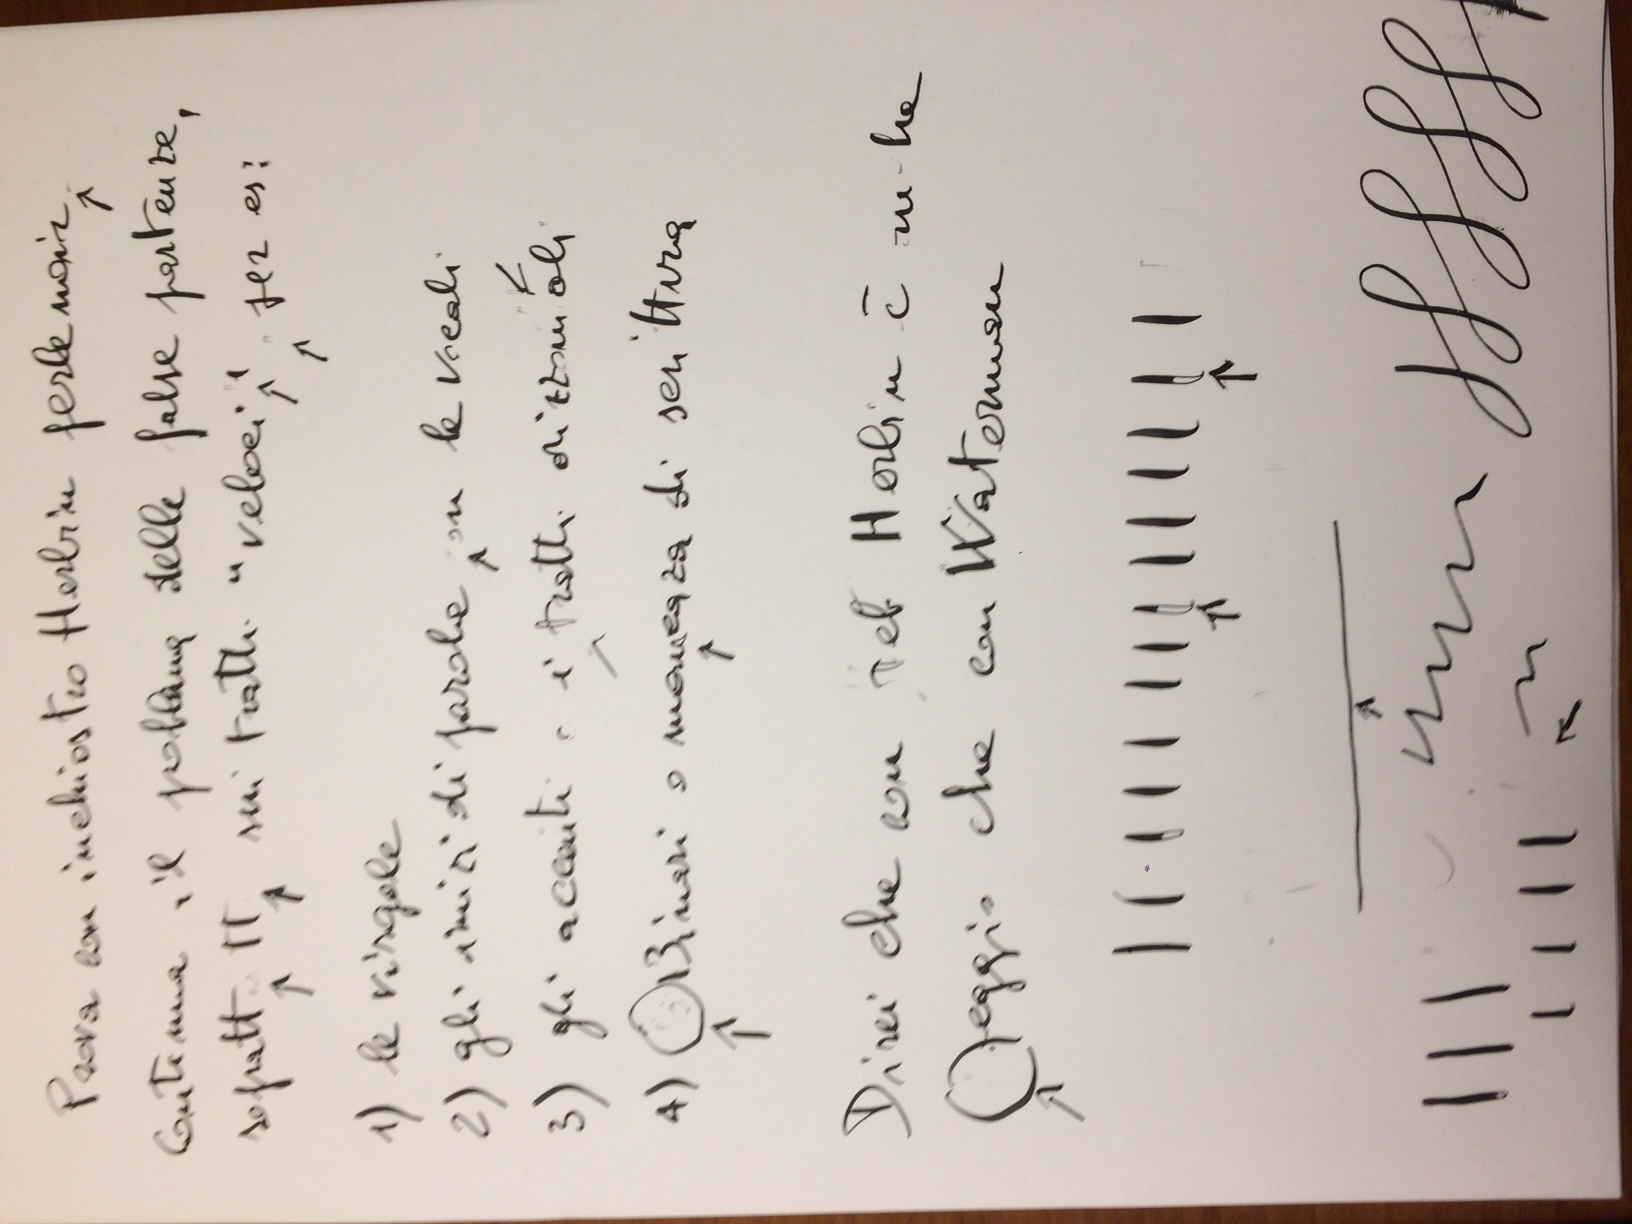 Prova con inchiostro Herbin perle noir
Continua il problema delle false partenze,
sopratt tt sui tratti "veloci" per es:
1) le virgole
2) gli inizi di parole con le vocali
3) gli accenti e i tratti orizzontali
4) Binari o mancanza di scrittura
Direi che con sto Herbin c'è
peggio che con Waterman